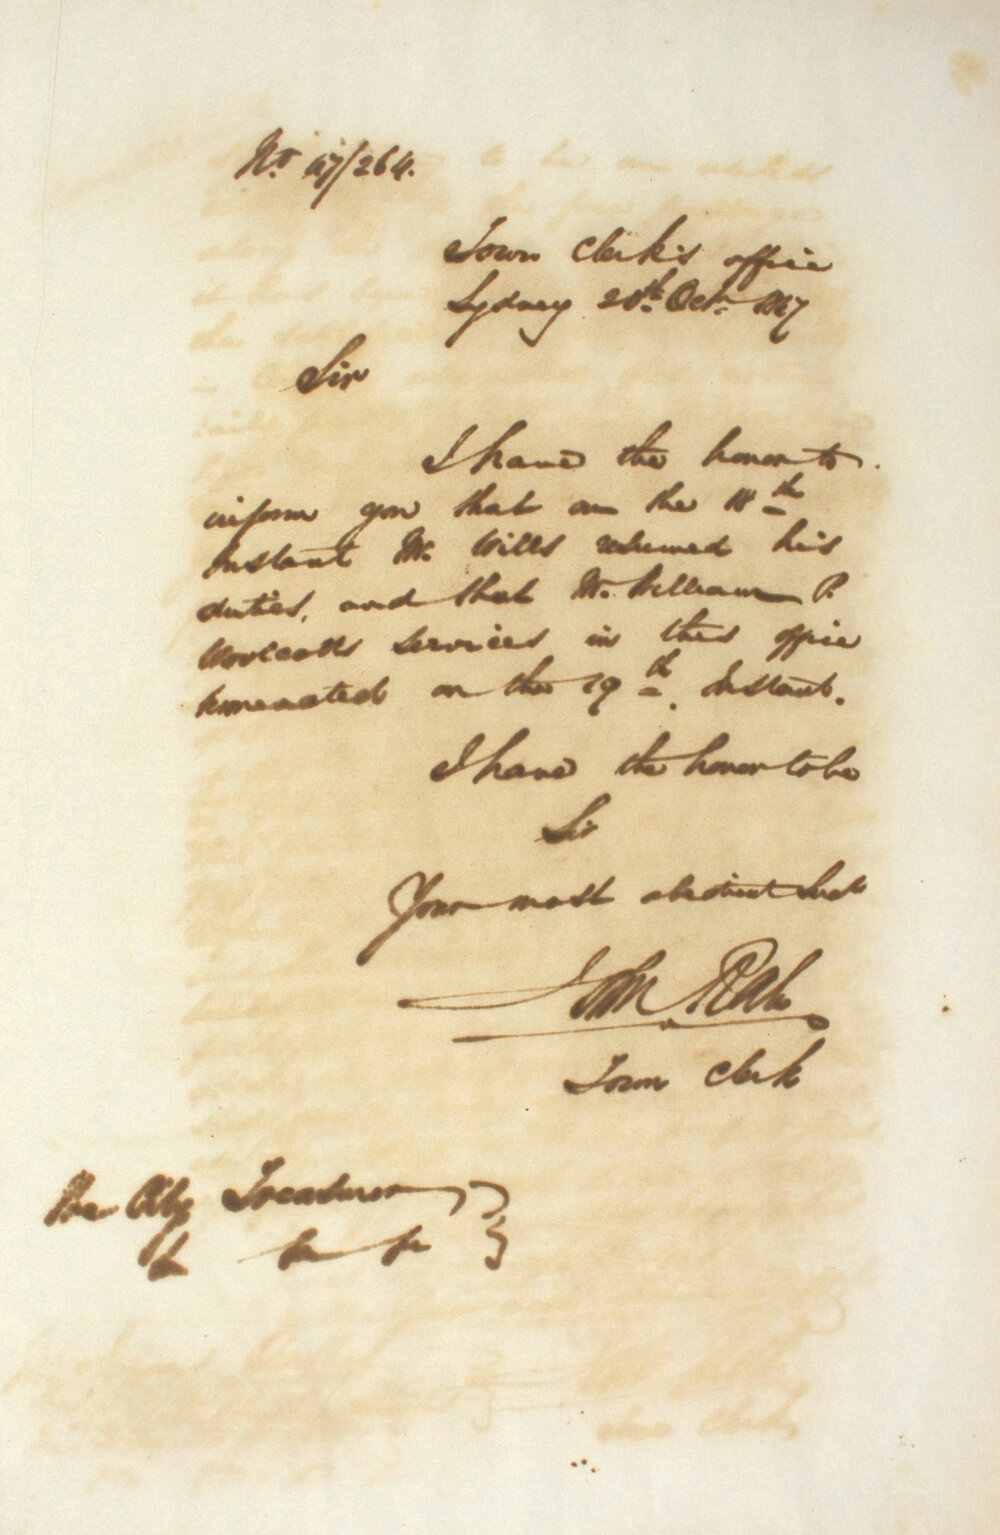 No. 47/264.
Town Clerk's office
Sydney 20th. Octr. 1847
Sir
I have the honor to
inform you that on the 18th
Instant Mr. Wills resumed his
duties, and that Mr. William P.
Woolcotts Services in this office
terminated on the 19th. Instant.
I have the honor to be
Sir
Your most obedient Servt
John Rae
Town Clerk
The City Treasurer
&c &c &c